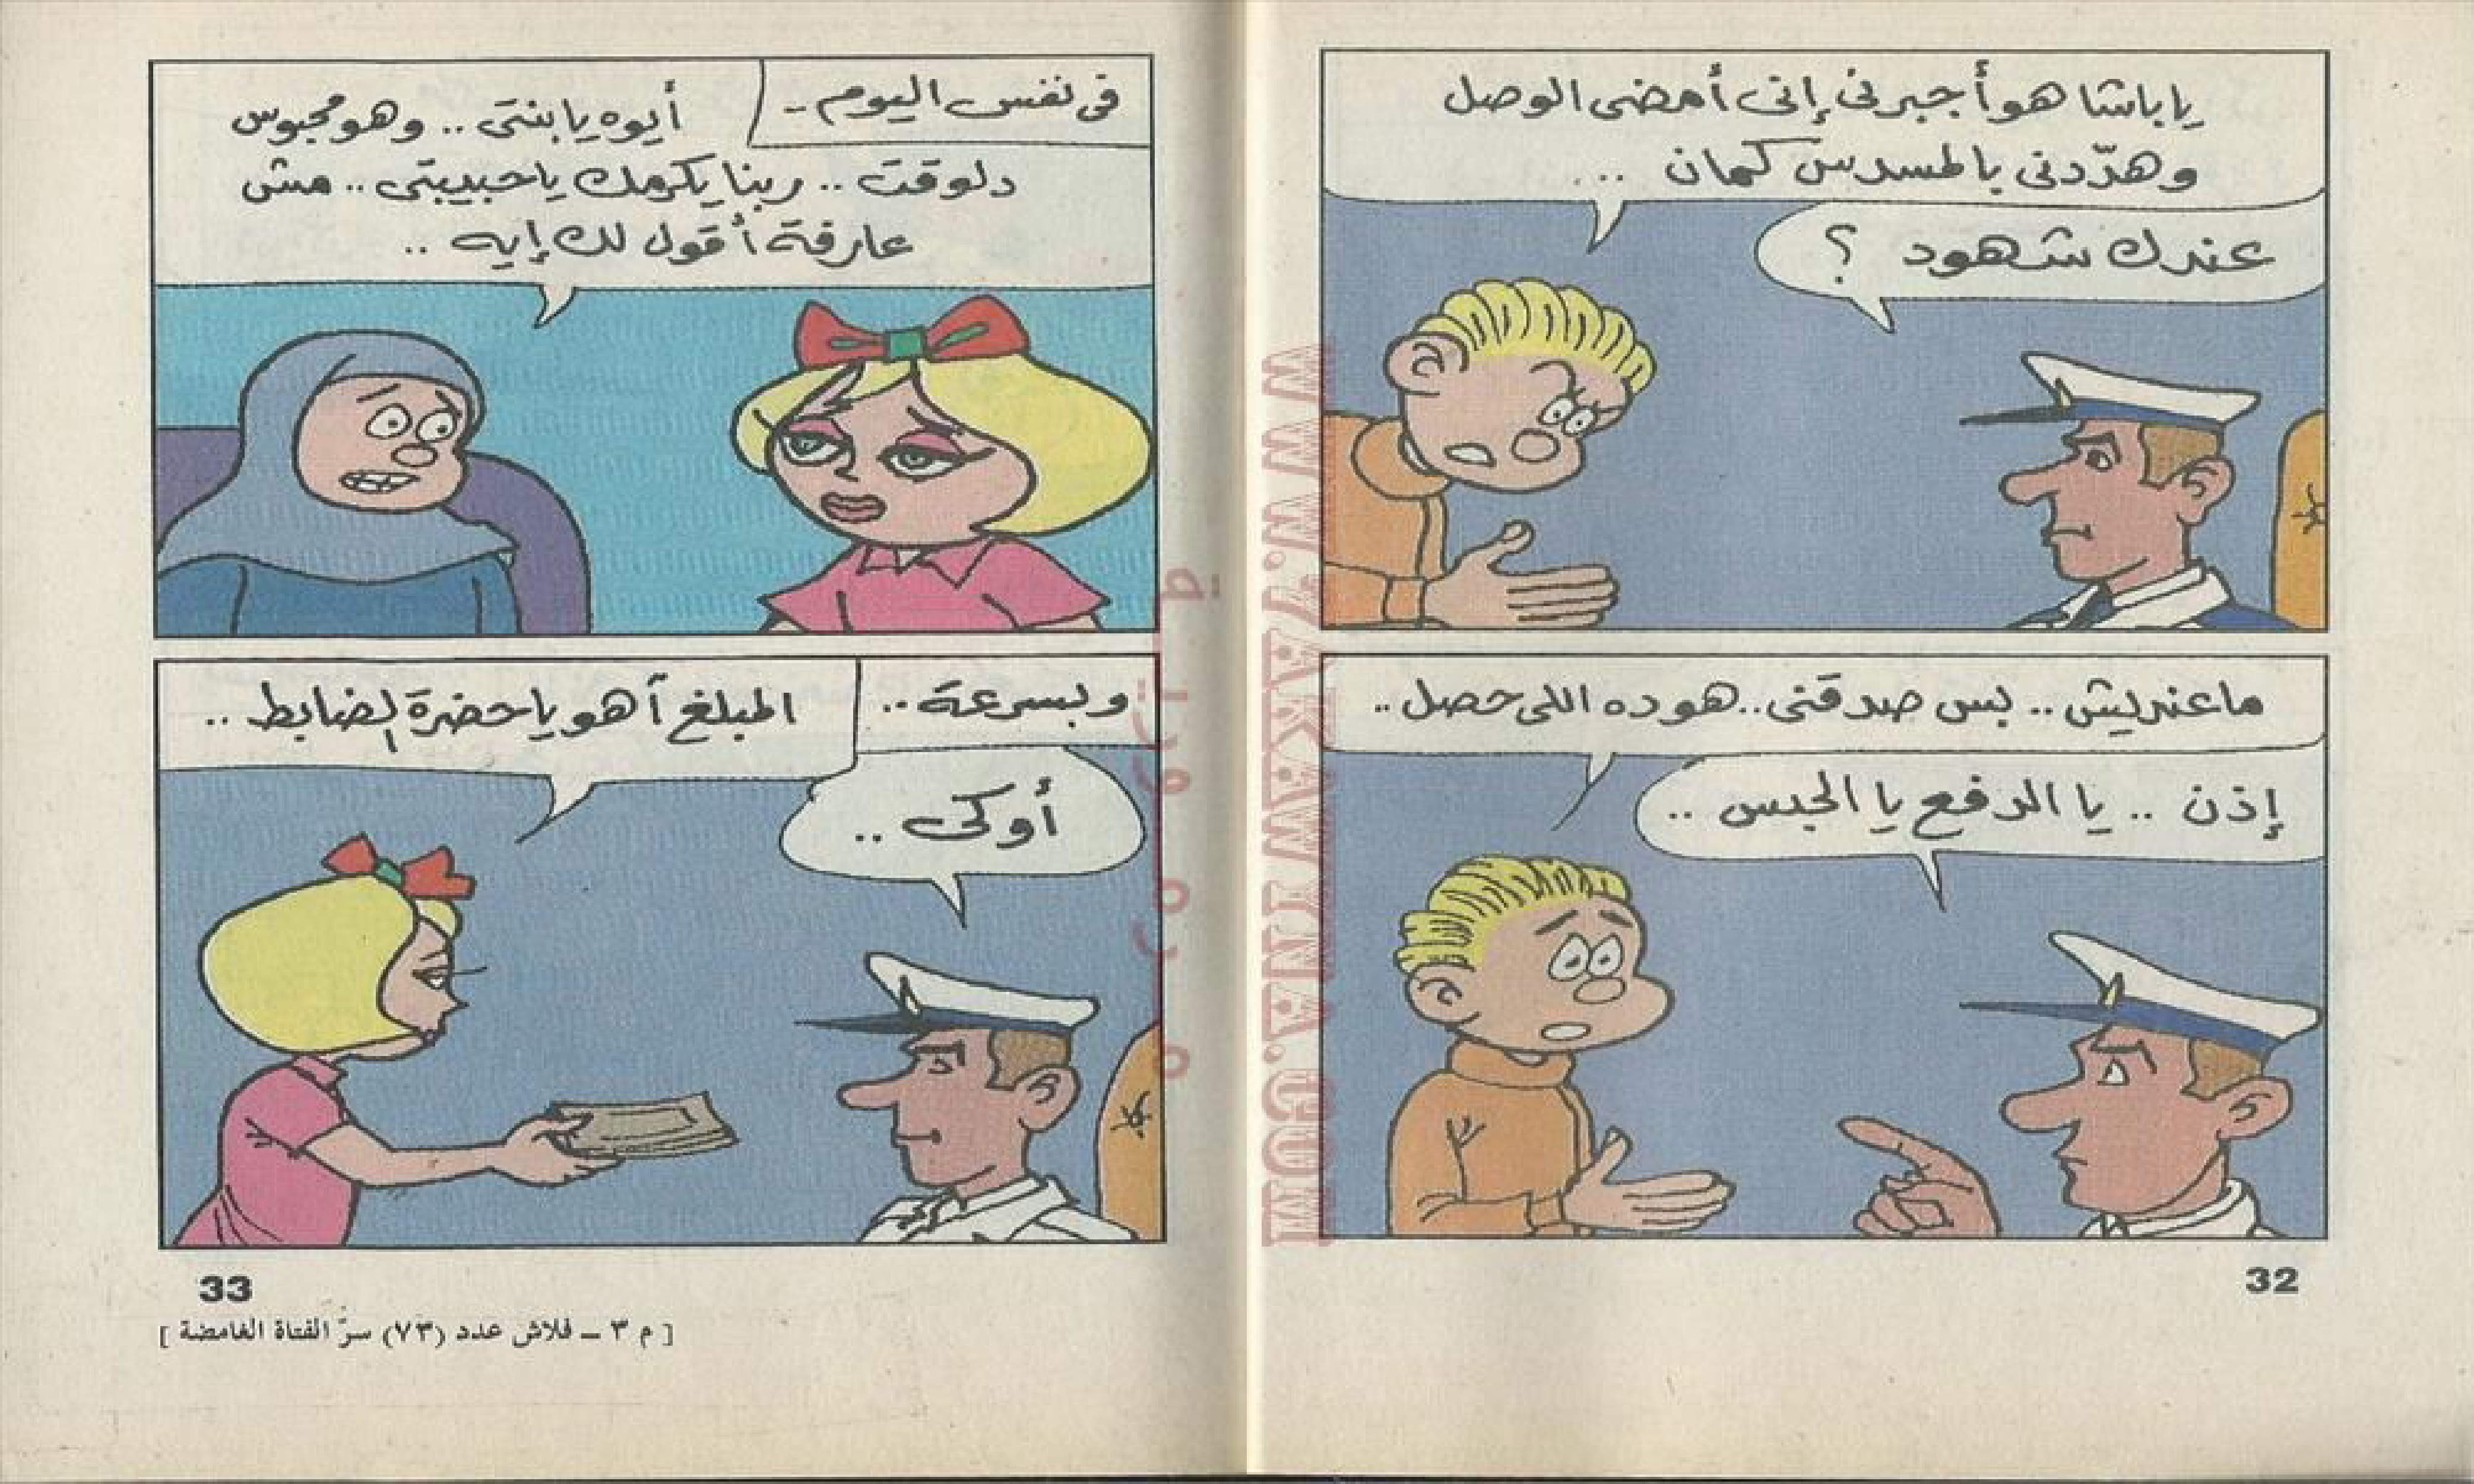 يا باشا هو أجبرنى إنى أمضى الوصل
وهدّدنى بالمسدس كمان ...
عندك شهود ؟
ماعنديش .. بس صدقنى .. هو ده اللى حصل ..
إذن .. يا الدفع يا الحبس ..
32
فى نفس اليوم -
أيوه يا بنتى .. وهو محبوس
دلوقت .. ربنا يكرمك يا حبيبتى .. مش
عارفة أقول لك إيه ..
وبسرعة ..
المبلغ آهو يا حضرة لضابط ..
أوكى ..
33
[ م ٣ ـ فلاش عدد (٧٣) سرّ الفتاة الغامضة ]